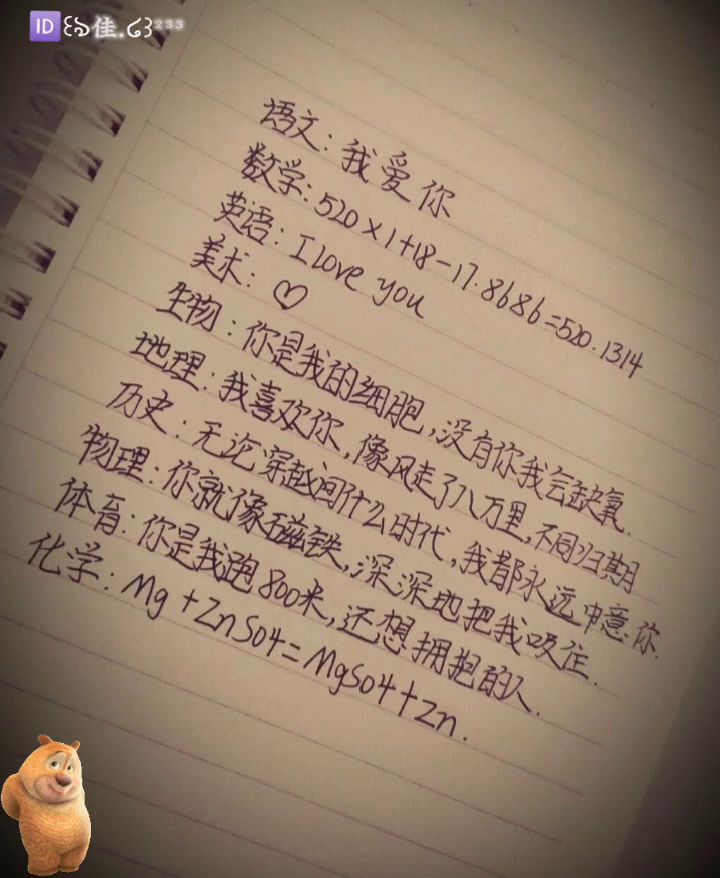 🆔꒰ঌ佳.໒꒱²³³
语文：我爱你
数学：520×1+18-17.8686=520.1314
英语：I love you
美术：♡
生物：你是我的细胞，没有你我会缺氧.
地理：我喜欢你，像风走了八万里，不问归期
历史：无论穿越问什么时代，我都永远中意你.
物理：你就像磁铁，深深地把我吸住.
体育：你是我跑800米，还想拥抱的人.
化学：Mg+ZnSO4=MgSO4+Zn.